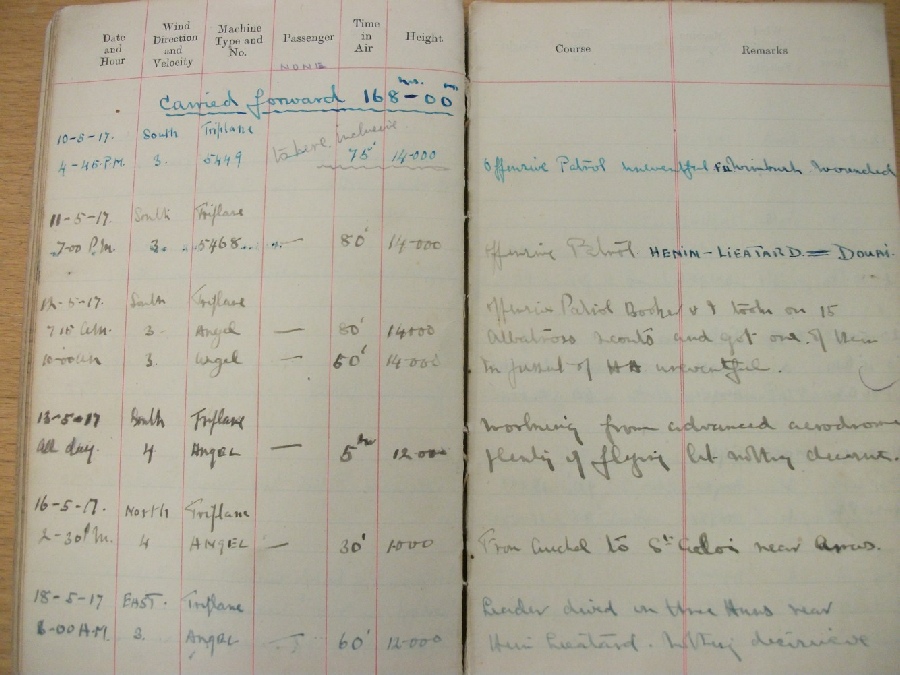 Date and Hour Wind Direction and Velocity Machine Type and No. Passenger Time in Air Height Course Remarks
NONE
Carried forward 168-00
hrs. ms
10-5-17. South Triplane
4-45 P.M. 3. 5449 75' 14-000 Offensive Patrol uneventful wounded
inclusive
11-5-17. South Triplane
7-00 P.M. 3. 5468 — 80' 14-000 Offensive Patrol. HENIN-LIETARD = DOUAI.
12-5-17. South Triplane Offensive Patrol Booker & I took on 15
7-15 A.M. 3. Angel — 80' 14000 Albatross scouts and got one of them
10-00 A.M. 3. Angel — 50' 14-000 In pursuit of HA uneventful.
13-5-17 South Triplane Working from advanced aerodrome
All day. 4 ANGEL — 5 hrs 12-000 plenty of flying but nothing decisive.
16-5-17. North Triplane
2-30 P.M. 4 ANGEL — 30' 1000 From Auchel to St Eloi near Arras.
18-5-17 EAST. Triplane Leader dived on three Huns near
8-00 A.M. 3. Angel 60' 12-000 Henin Lietard. Nothing decisive